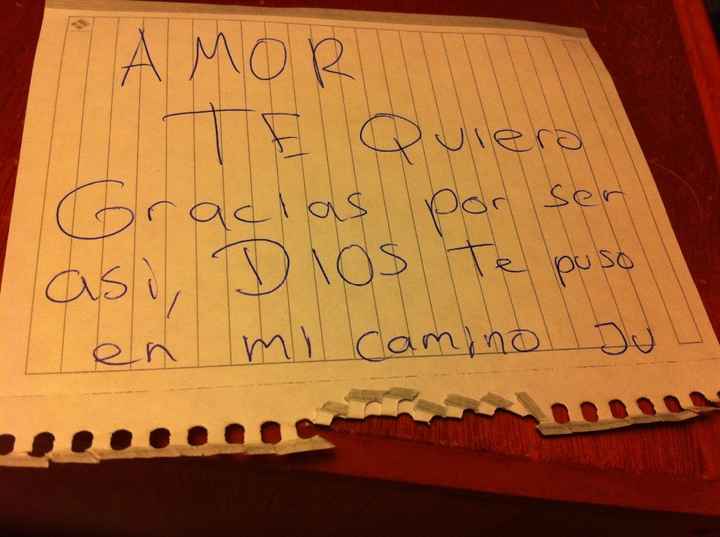 AMOR
TE Quiero
Gracias por ser
así, DIOS Te puso
en mi camino Ju